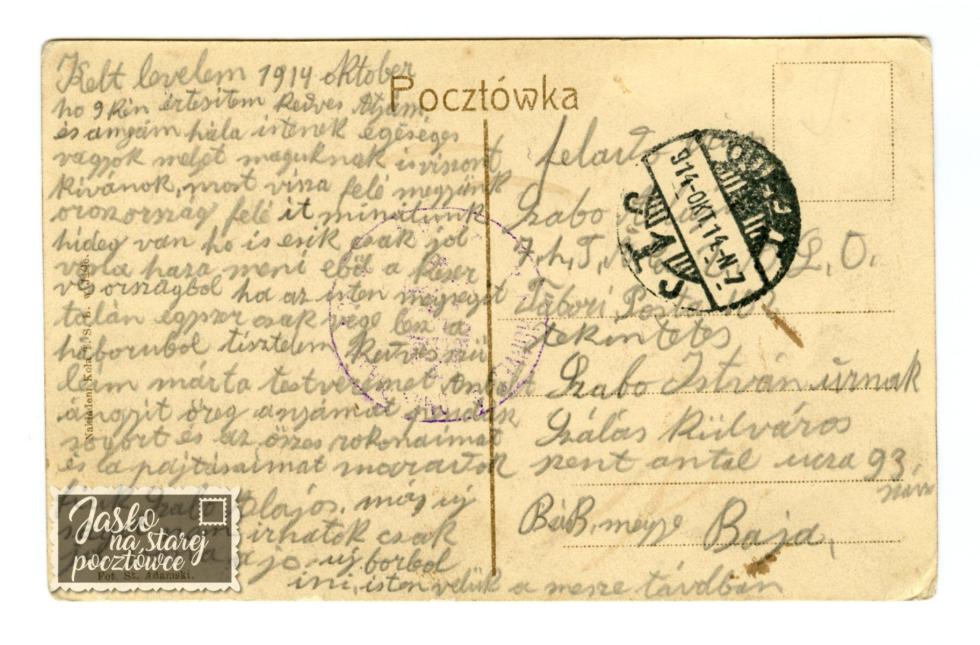 Kelt levelem 1914 oktober
ho 9 kén értesitem kedves Atyám
és anyám hála istenek egéséges
vagyok melyet maguknak is viszont
kivánok, most visza felé megyünk
oroszország felé it minálunk
hideg van ho is esik csak jol
vola haza meni eböl a
országbol ha az isten megsegit
talán egyszer csak vége lesz a
háborubol tisztelem kedves szü
leim márta testveremet
ángyit öreg anyámat
sógort és az öszes rokonaimat
és a pajtásaimat maradtok
Alajos, még uj
irhatok csak
a jo uj borbol
ini, isten velük a mesze távolban
Pocztówka
felado
Szabo
7, h,
L, O,
Tábori Posta
tekintetes
Szabo István urnak
Szálás külváros
szent antal ucza 93,
BáB, megye Baja,
914-OKT.14-N7
Nakładem
Fot. St. Adamski.
Jasło
na starej
pocztówce